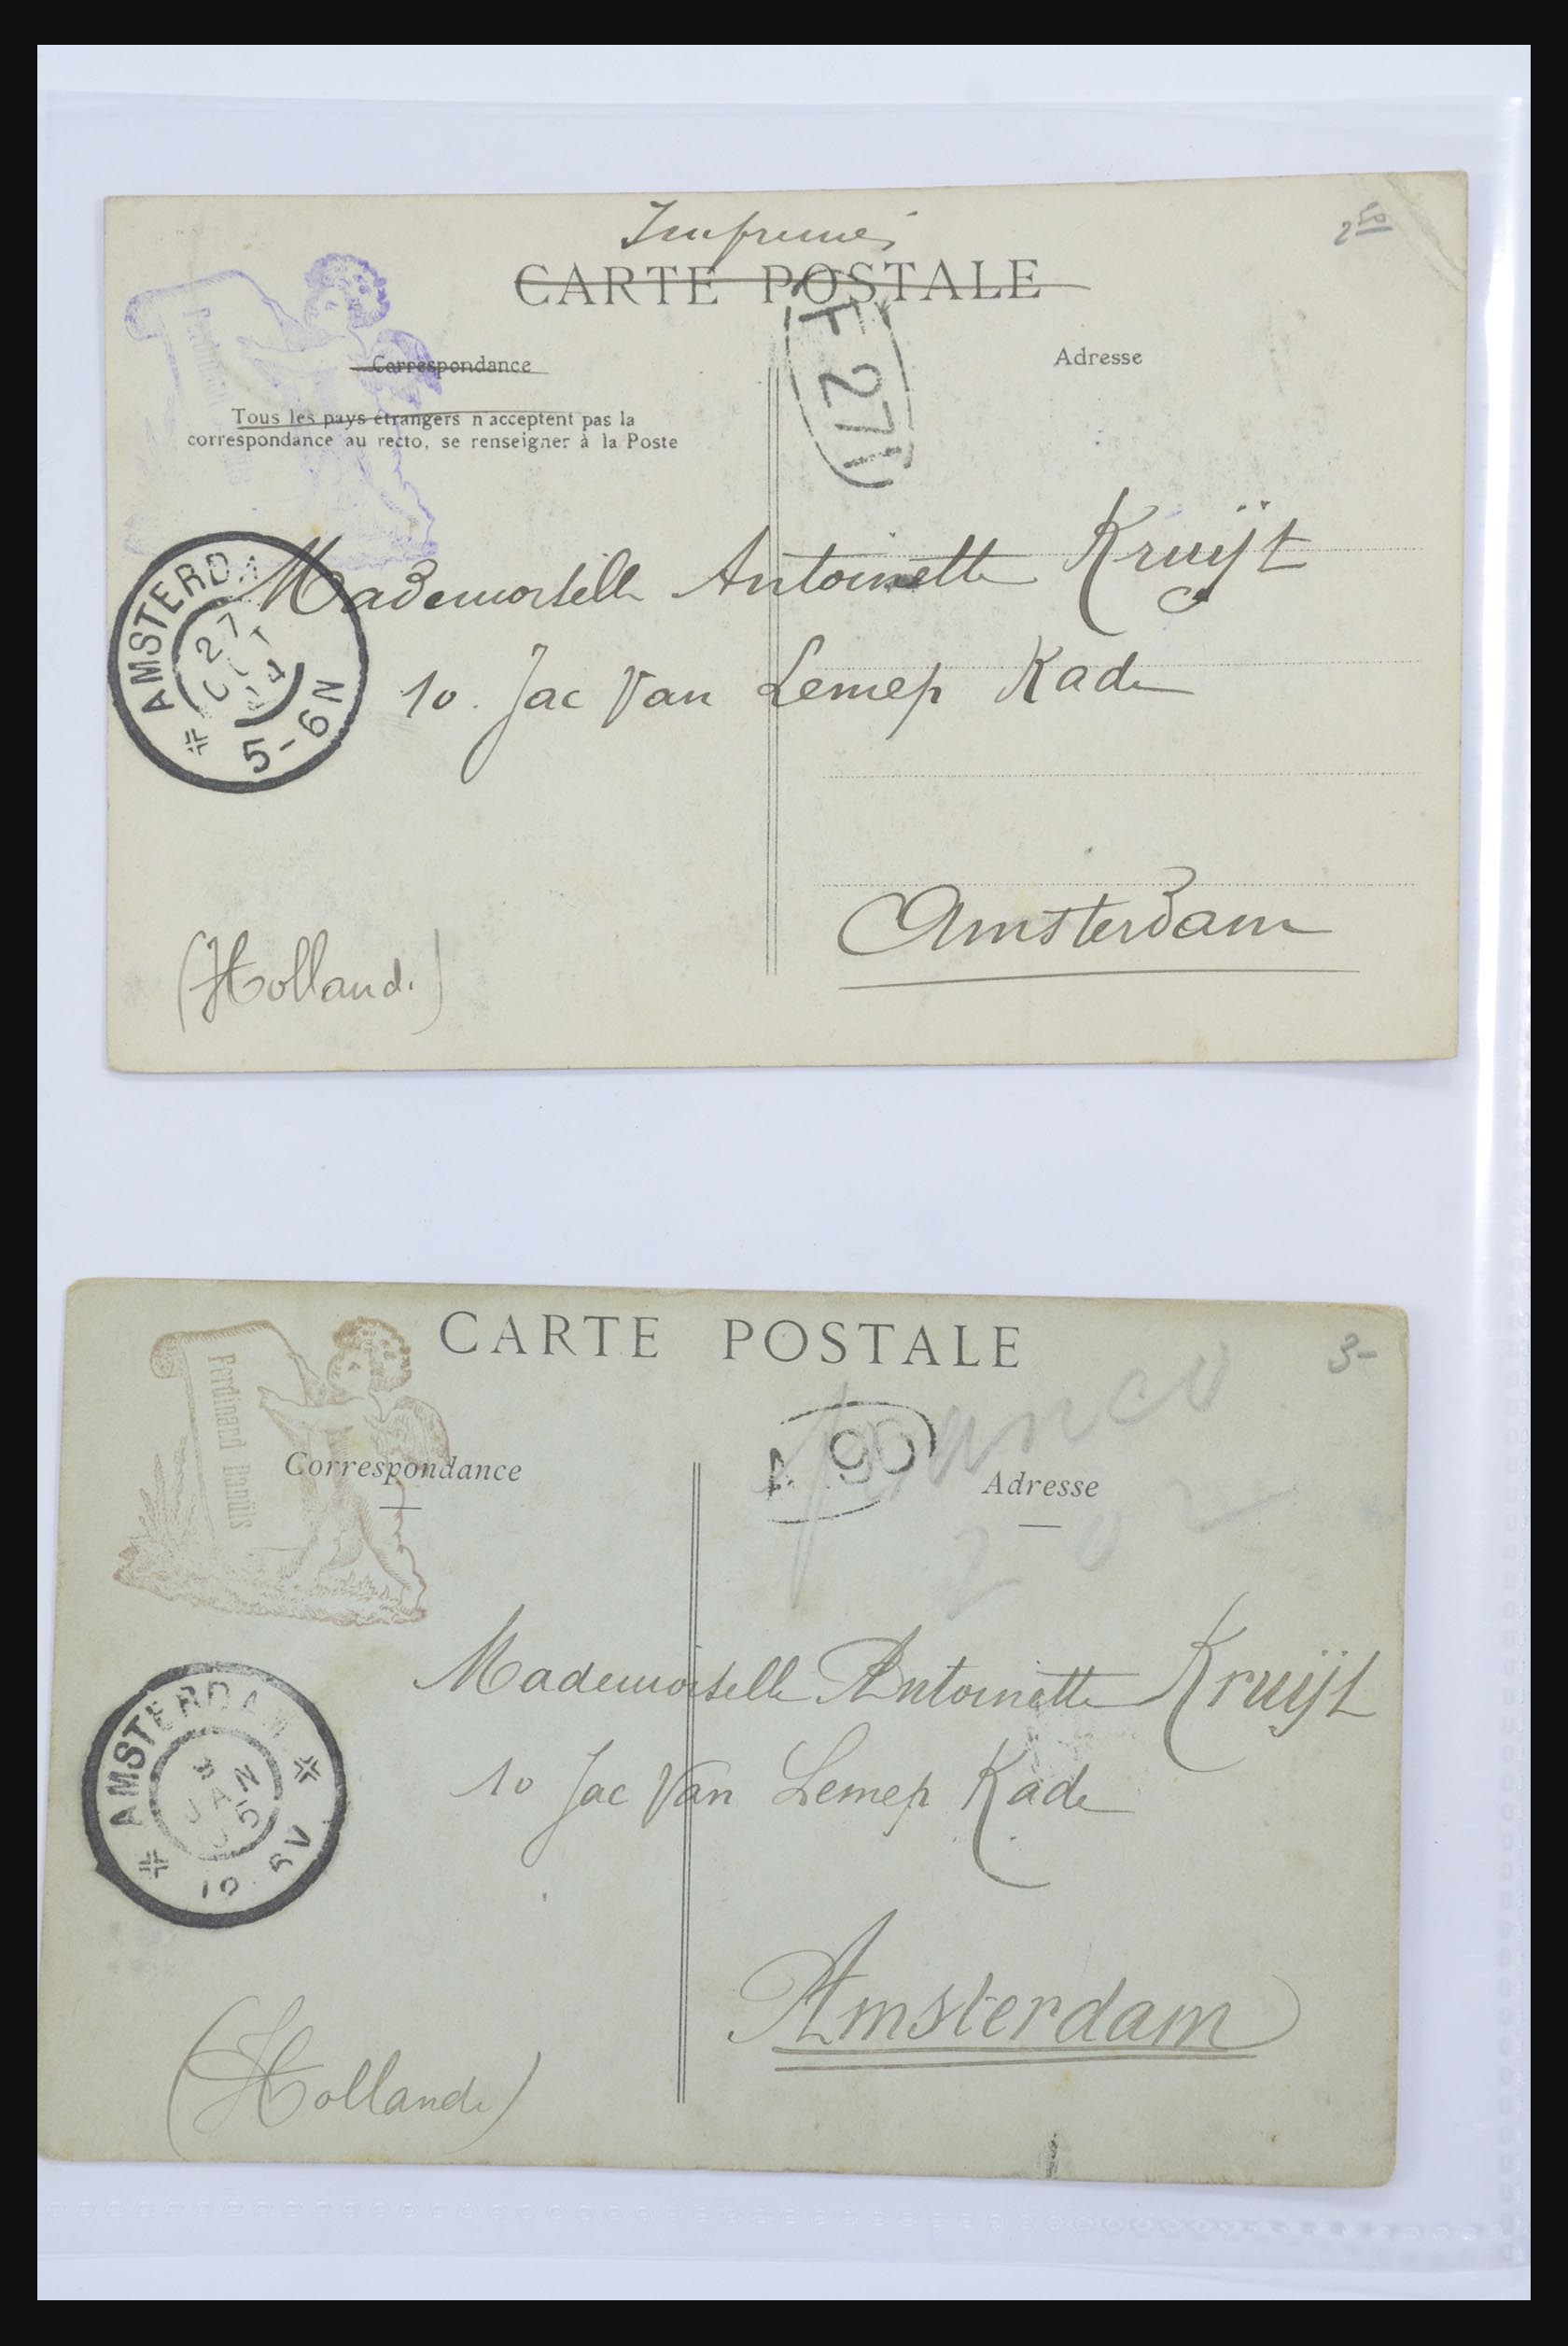 Imprimés
2 50
CARTE POSTALE
Ferdinand
Correspondance
Adresse
Tous les pays étrangers n'acceptent pas la
correspondance au recto, se renseigner à la Poste
E 271
AMSTERDA
27
5-6N
Mademoiselle Antoinette Kruijt
10. Jac Van Lemep Kade
Amsterdam
(Holland.)
CARTE POSTALE
3-
Ferdinand
Correspondance
Adresse
90
franco
AMSTERDAM
JAN
05
Mademoiselle Antoinette Kruijt
10 Jac Van Lemep Kade
Amsterdam
(Hollande)